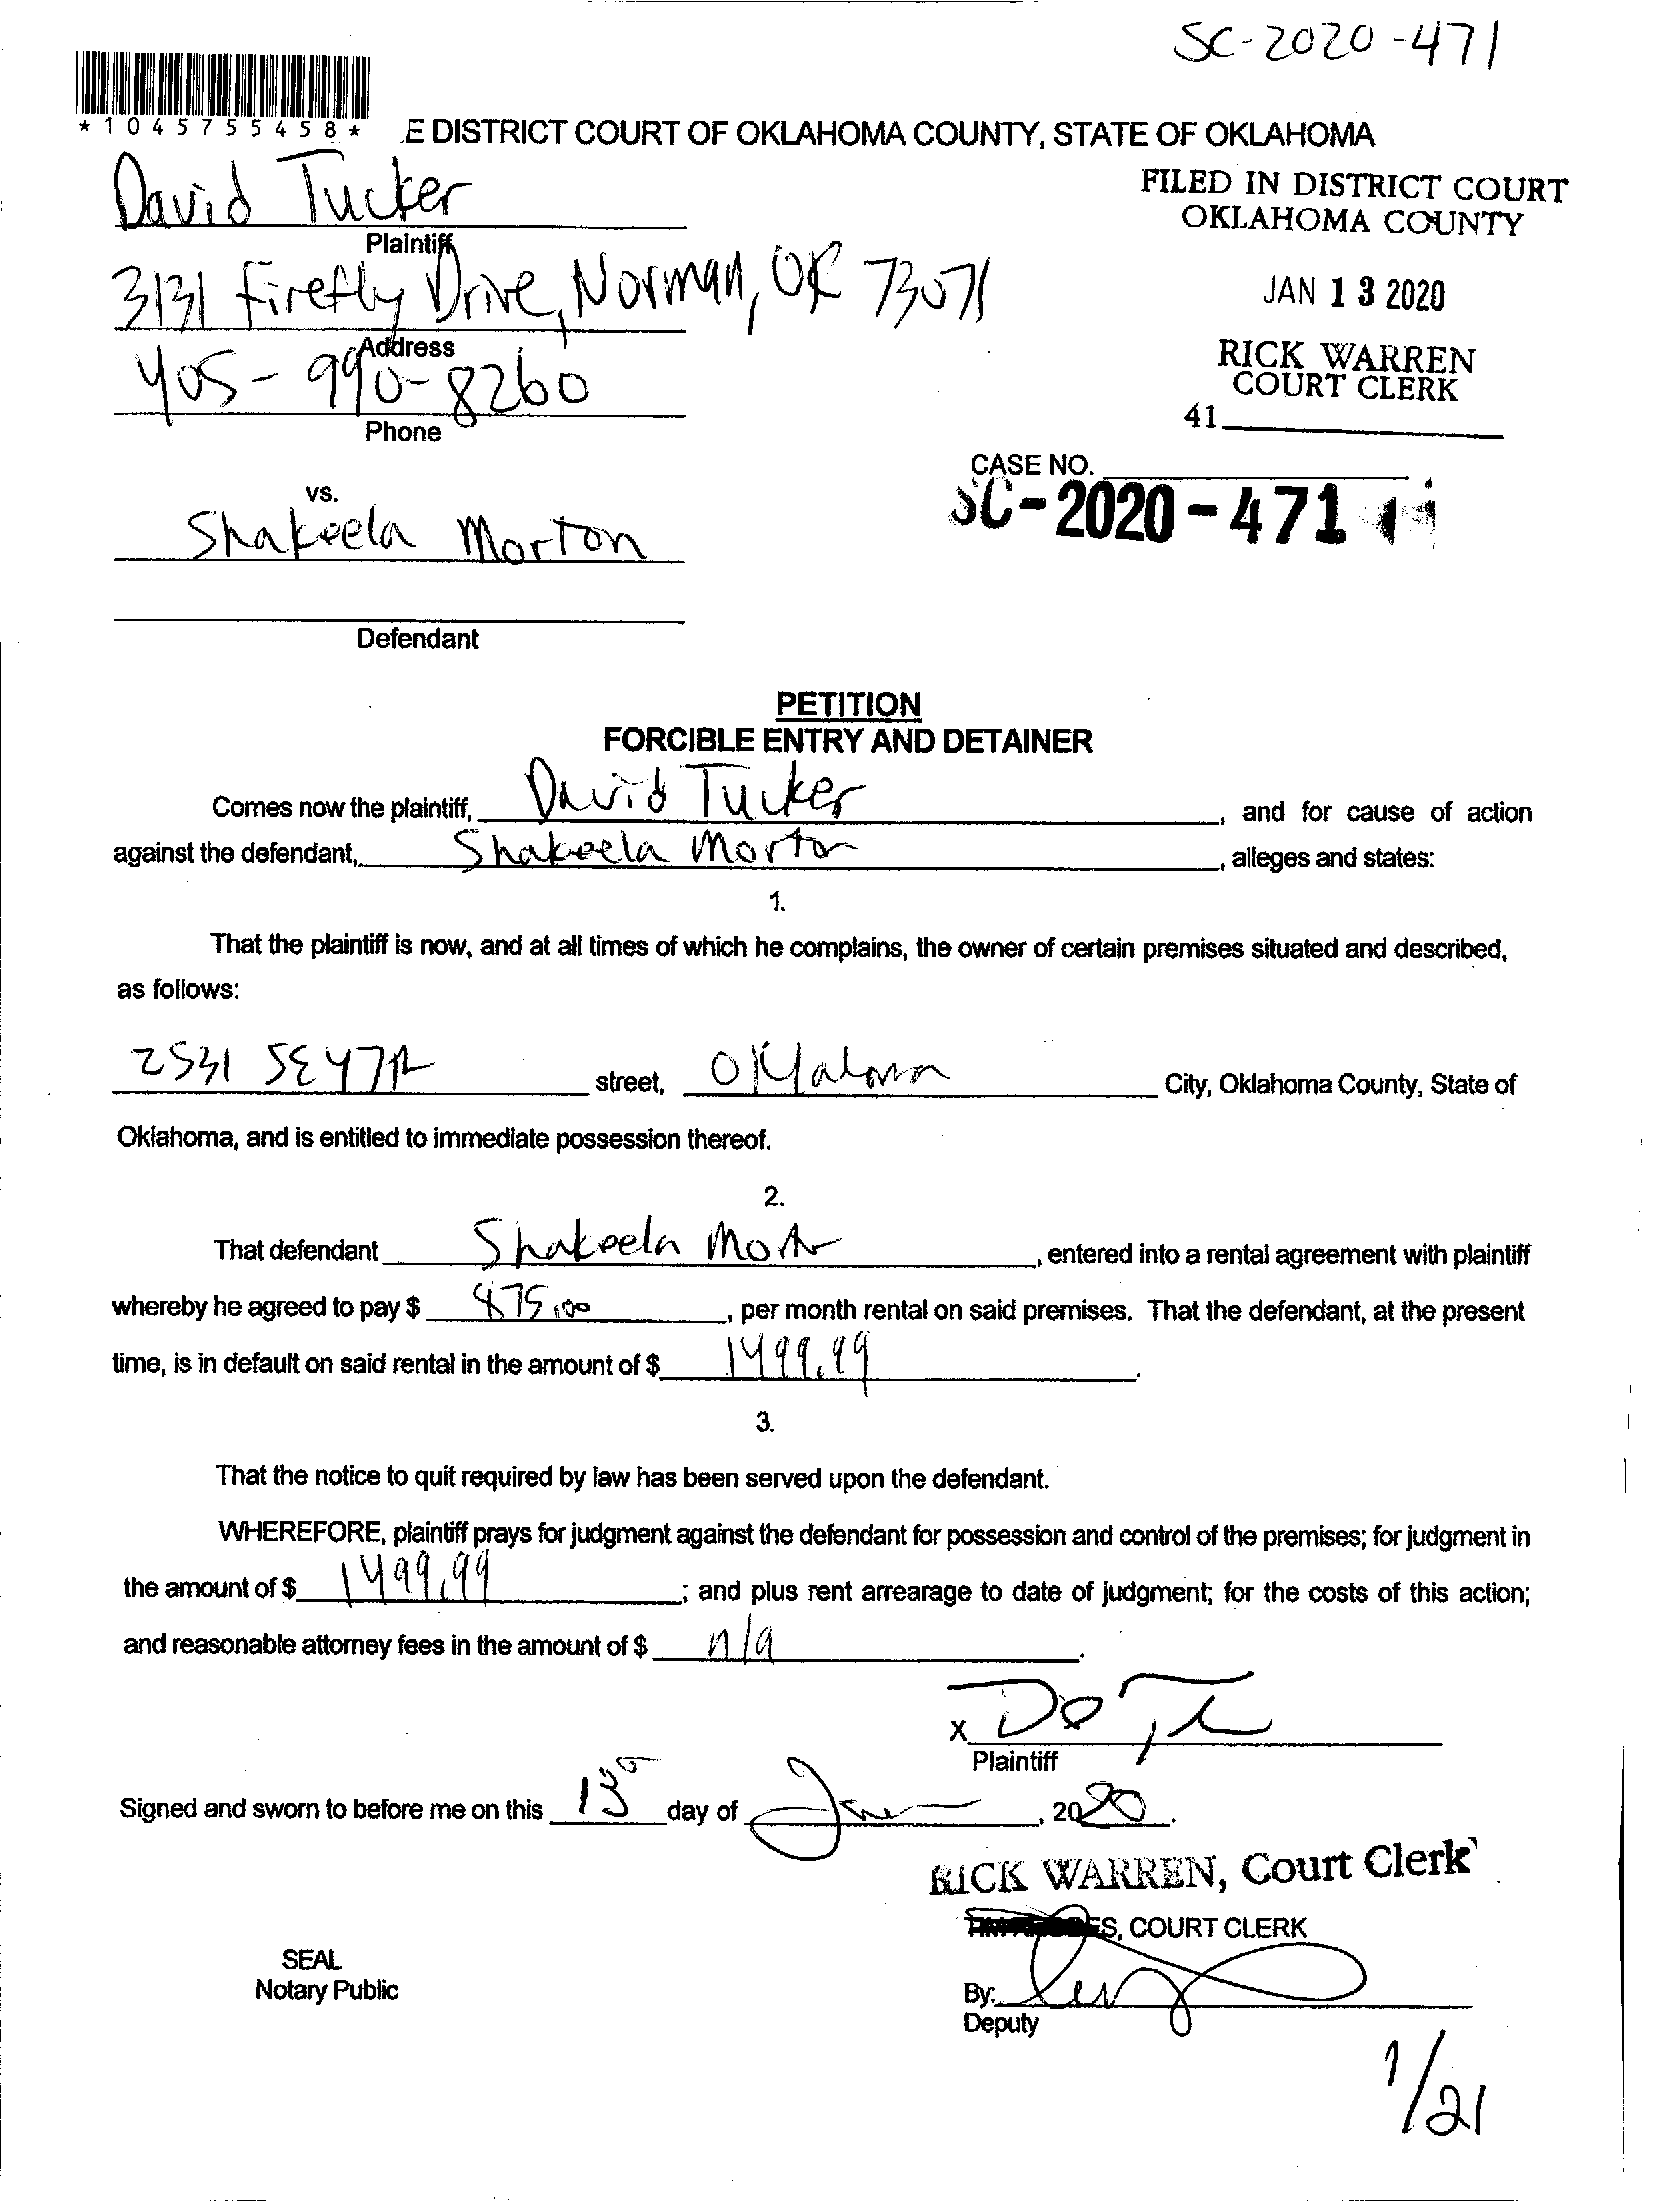 SC-2020-471
*1045755458*
E DISTRICT COURT OF OKLAHOMA COUNTY, STATE OF OKLAHOMA
David Tucker
Plaintiff
FILED IN DISTRICT COURT
OKLAHOMA COUNTY
3131 Firefly Drive, Norman, OK 73071
Address
JAN 13 2020
405-990-8260
Phone
RICK WARREN
COURT CLERK
41
CASE NO.
SC-2020-471
vs.
Shakeela Morton
Defendant
PETITION
FORCIBLE ENTRY AND DETAINER
Comes now the plaintiff, David Tucker, and for cause of action
against the defendant, Shakeela Morton, alleges and states:
1.
That the plaintiff is now, and at all times of which he complains, the owner of certain premises situated and described,
as follows:
2531 SE 47th street, Oklahoma City, Oklahoma County, State of
Oklahoma, and is entitled to immediate possession thereof.
2.
That defendant Shakeela, entered into a rental agreement with plaintiff
whereby he agreed to pay $, per month rental on said premises. That the defendant, at the present
time, is in default on said rental in the amount of $ 1499.99.
3.
That the notice to quit required by law has been served upon the defendant.
WHEREFORE, plaintiff prays for judgment against the defendant for possession and control of the premises; for judgment in
the amount of $ 1499.99; and plus rent arrearage to date of judgment; for the costs of this action;
and reasonable attorney fees in the amount of $ n/a.
X
Plaintiff
Signed and sworn to before me on this 13 day of, 2020.
RICK WARREN, Court Clerk
ES, COURT CLERK
SEAL
Notary Public
By:
Deputy
1/21